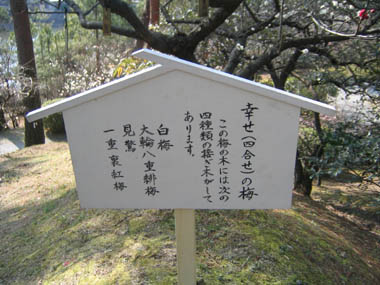 幸せ(四合せ)の梅
この梅の木には次の
四種類の接ぎ木がして
あります。
白梅
大輪八重緋梅
見驚
一重裏紅梅